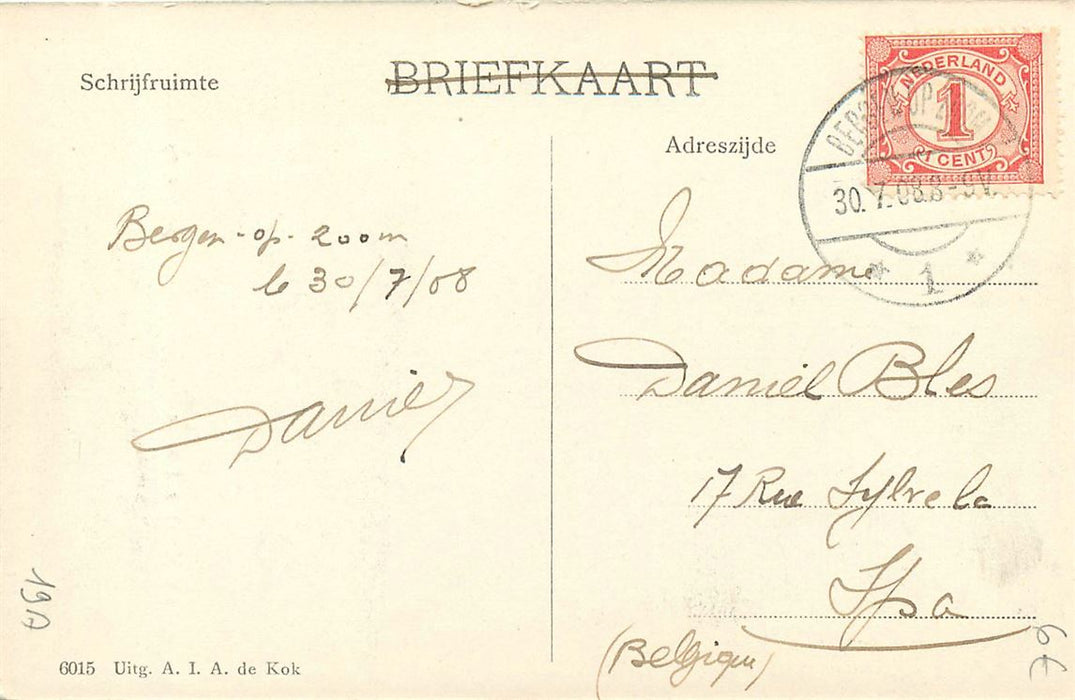 BRIEFKAART
Schrijfruimte
Adreszijde
NEDERLAND
1
1 CENT
BERGEN OP ZOOM
30. 7. 08. 8-9 V.
1
Bergen-op-zoom
le 30/7/08
Daniel
Madame
Daniel Bles
17 Rue Sylvela
Spa
(Belgique)
6015 Uitg. A. I. A. de Kok